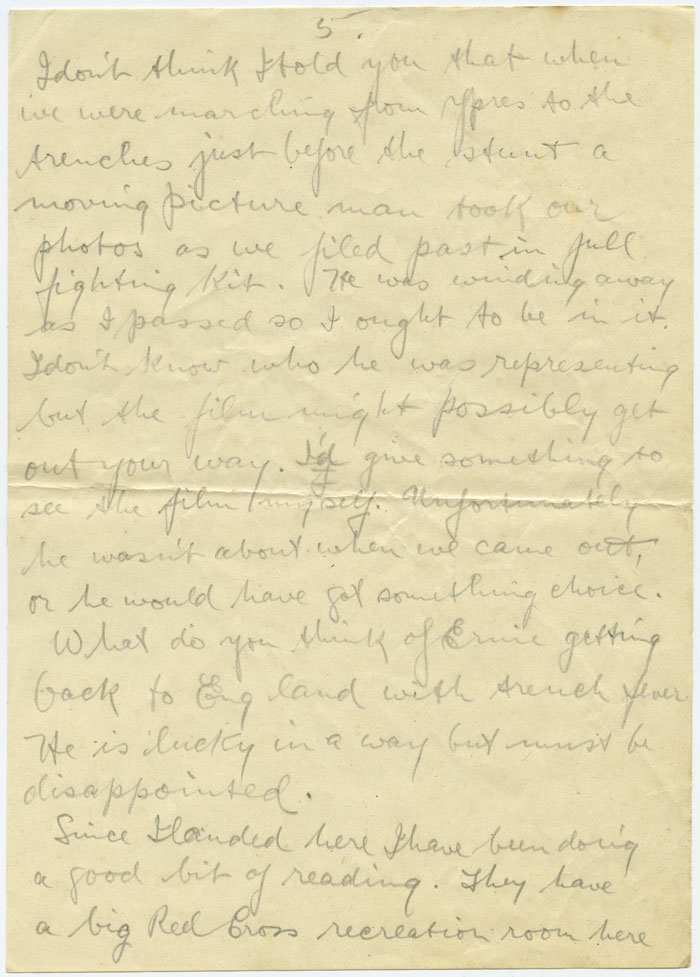 5.
I don't think I told you that when
we were marching from Ypres to the
trenches just before the stunt a
moving picture man took our
photos as we filed past in full
fighting kit. He was winding away
as I passed so I ought to be in it.
I don't know who he was representing
but the film might possibly get
out your way. I'd give something to
see the film myself. Unfortunately
he wasn't about when we came out,
or he would have got something choice.
What do you think of Ernie getting
back to England with trench fever
He is lucky in a way but must be
disappointed.
Since I landed here I have been doing
a good bit of reading. They have
a big Red Cross recreation room here